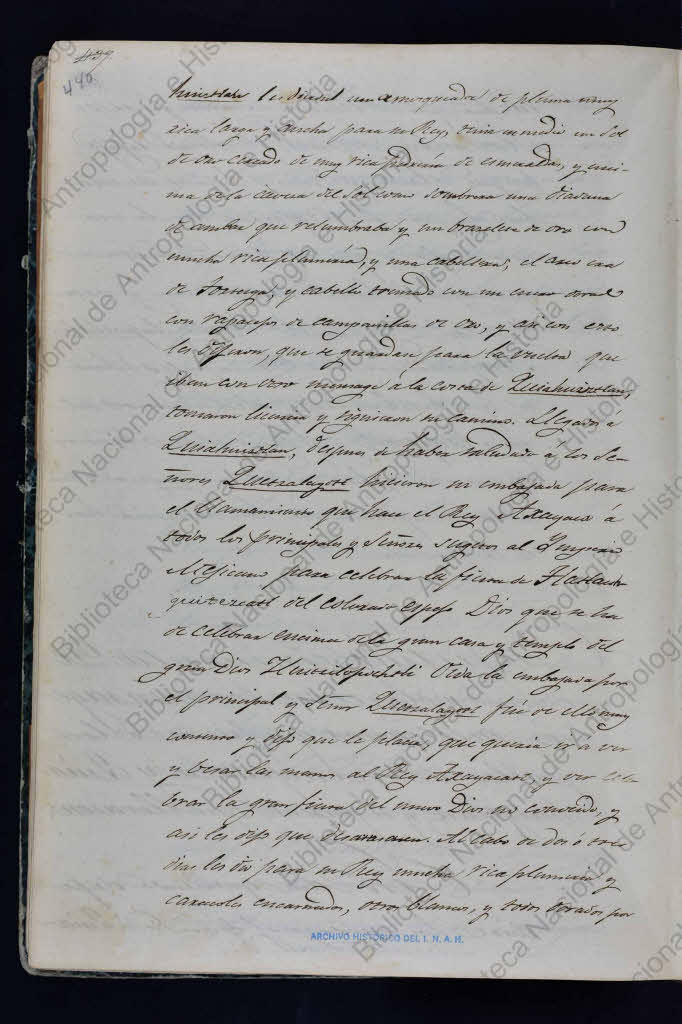 437
440.
les dieron un amosqueador de pluma muy
rica larga y ancha para su Rey, tenia en medio un Sol
de oro cercado de muy rica pedreria de esmeraldas, y enci-
ma de la cavera del Sol como sombrera una diadema
de ambar que relumbraba y un brazelete de oro con
mucha rica plumeria, y una cabellera, el era
de tortuga, y cabello trenzado con un cuero
con rapasejos de campanillas de oro, y asi con esto
les dijeron, que se guardase para la vuelta que
iban con otro mensage á la costa de Quiahuiztlan,
tomaron licencia y siguieron su camino. Llegados á
Quiahuiztlan, despues de haber saludado á los Se-
ñores Quetzalayotl hicieron su embajada para
el llamamiento que hace el Rey Axayaca á
todos los principales y Señores sugetos al Imperio
Mejicano para celebrar la fiesta de
del colorado espejo Dios que se ha
de celebrar encima de la gran casa y templo del
gran Dios Huitzilopochtli Oida la embajada por
el principal y Señor Quetzalayotl fué de ello muy
contento y dijo que le placia, que queria ir á ver
y besar las manos al Rey Axayacatl, y ver cele-
brar la gran fiesta del nuevo Dios no conocido, y
asi les dijo que descansasen. Al cabo de dos ó tres
dias les dió para su Rey mucha rica plumeria y
caracoles encarnados, otros blancos, y todos dorados por
ARCHIVO HISTÓRICO DEL I. N. A. H.
Biblioteca Nacional de Antropología e Historia